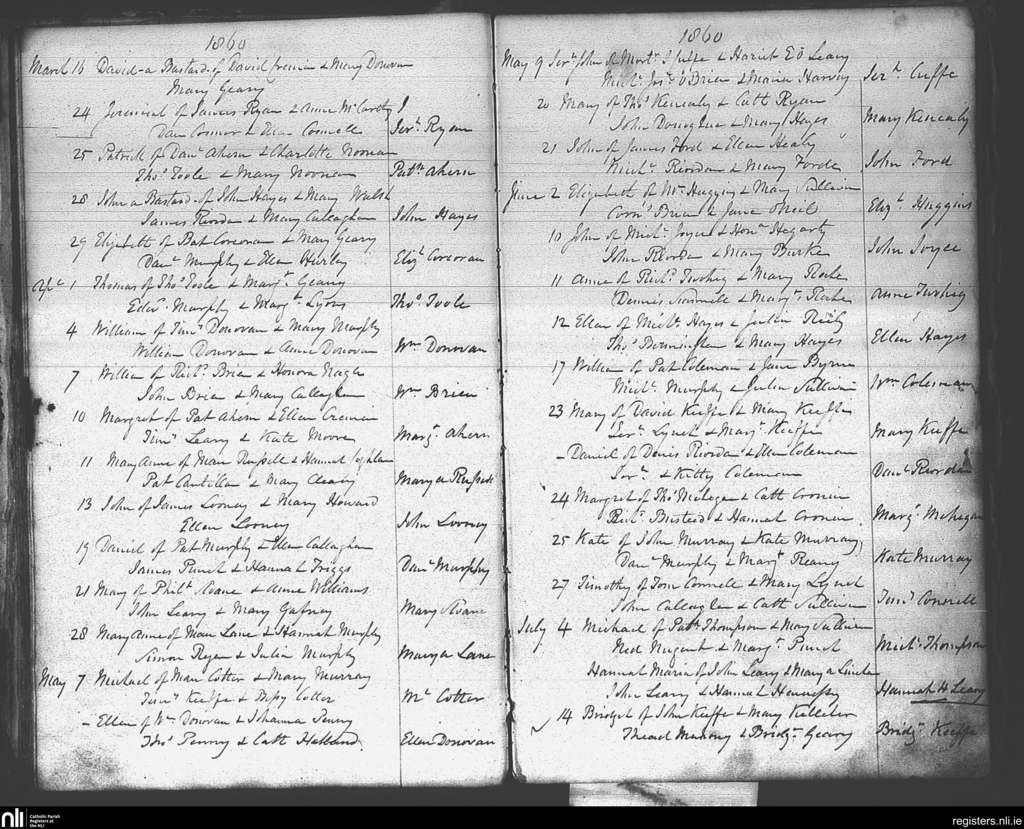 1860
March 16 David a Bastard of David Cronin & Mary Donovan
Mary Geary
24 Jeremiah of James Ryan & Anne McCarthy
Dan Connor & Ellen Connell Jerh Ryan
25 Patrick of Danl Ahern & Charlotte Noonan
Thos Toole & Mary Noonan Patk Ahern
28 John a Bastard of John Hayes & Mary Walsh
James Riordan & Mary Callaghan John Hayes
29 Elizabeth of Pat Corcoran & Mary Geary
Danl Murphy & Ellen Hurley Eliz Corcoran
Apl 1 Thomas of Thos Toole & Margt Geary
Edwd Murphy & Margt Lyons Thos Toole
4 William of Timy Donovan & Mary Murphy
William Donovan & Anne Donovan Wm Donovan
7 William of Richd Brien & Honora Nagle
John Brien & Mary Callaghan Wm Brien
10 Margret of Pat Ahern & Ellen Cremin
Timy Leary & Kate Moore Margt Ahern
11 Mary Anne of Maur Russell & Hannah
Pat & Mary Cleary Mary a Russell
13 John of James Looney & Mary Howard
Ellen Looney John Looney
19 Daniel of Pat Murphy & Ellen Callaghan
James Punch & Hannah Triggs Danl Murphy
21 Mary of Philp Roane & Anne Williams
John Leary & Mary Gafney Mary Roane
28 Mary Anne of Maur Lane & Hannah Murphy
Simon Ryan & Julia Murphy Mary a Lane
May 7 Michael of Maur Cotter & Mary Murray
Timy Keeffe & Cotter Ml Cotter
- Ellen of Wm Donovan & Johanna Penny
Thos Penny & Cath Holland Ellen Donovan
1860
May 9 Jerh John of Mort Cuffe & Hariet Ed Leary
Michl Jos O'Brien & Maria Harvey Jerh Cuffe
20 Mary of Thos Kenealy & Cath Ryan
John Donoghue & Mary Hayes Mary Kenealy
21 John of James Ford & Ellen Healy
Michl Riordan & Mary Forde John Ford
June 2 Elizabeth of Wm Huggins & Mary Sullivan
Corns Brien & Jane ONeil Eliz Huggins
10 John of Michl Joyce & Honr Hegarty
John Riordan & Mary Burke John Joyce
11 Anne of Richd Twohig & Mary Roche
Dennis & Margt Roche Anne Twohig
12 Ellen of Michl Hayes & Julia Riely
Thos Bermingham & Mary Hayes Ellen Hayes
17 William of Pat Coleman & Jane Byrne
Michl Murphy & Julia Sullivan Wm Coleman
23 Mary of David Keeffe & Mary Keeffe
Jerh Lynch & Margt Keeffe Mary Keeffe
- Daniel of Denis Riordan & Ellen Coleman
Jerh & Kitty Coleman Danl Riordan
24 Margret of Thos Mehegan & Cath Cronin
Richd Busteed & Hannah Cronin Margt Mehegan
25 Kate of John Murray & Kate Murray
Danl Murphy & Margt Reany Kate Murray
27 Timothy of Tom Connell & Mary Lynch
John Callaghan & Cath Sullivan Timy Connell
July 4 Michael of Patk Thompson & Mary Sullivan
Ned Nugent & Margt Punch Michl Thompson
Hannah Maria of John Leary & Mary a
John Leary & Hannah Hennessy Hannah M Leary
14 Bridget of John Keeffe & Mary Kelleher
Thead Mahony & Bridgt Geary Bridgt Keeffe
nli Catholic Parish
Registers at
the NLI
registers.nli.ie